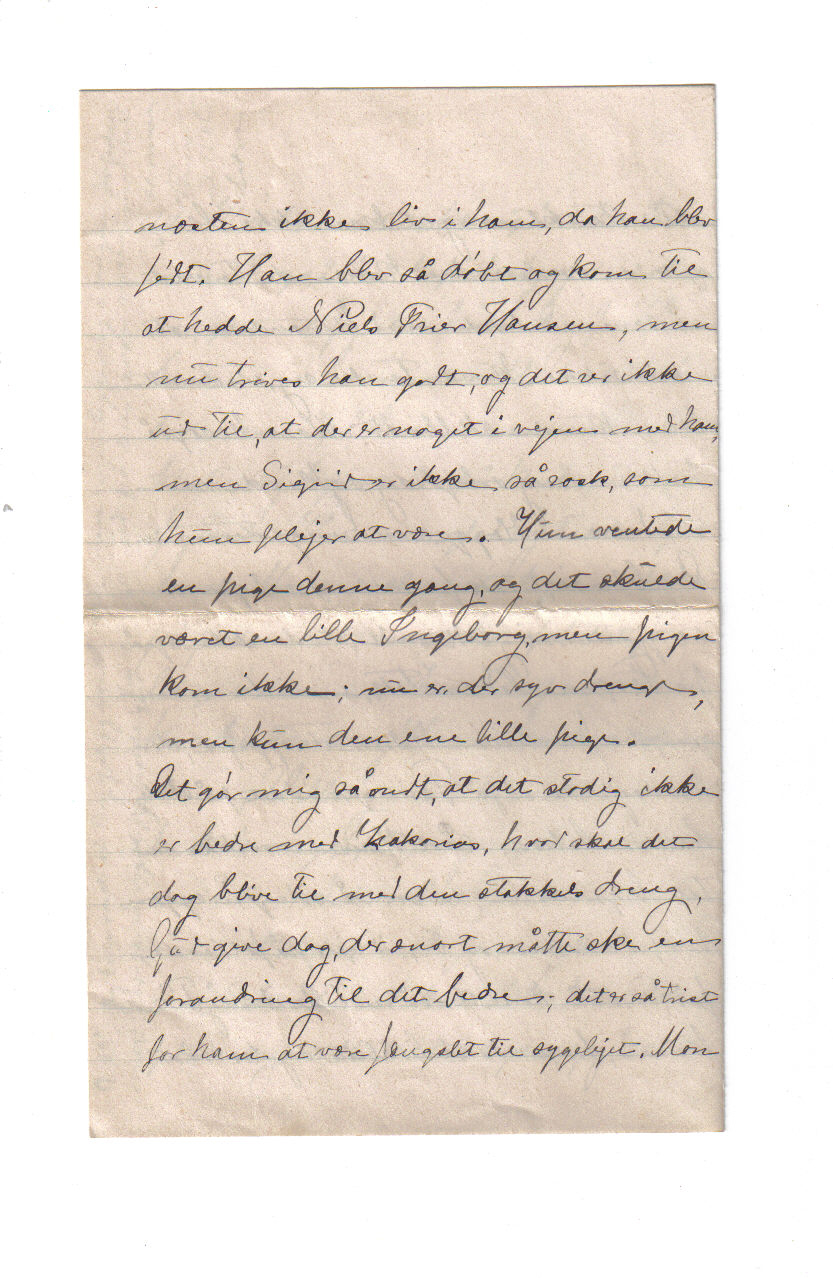 næsten ikke liv i ham, da han blev
født. Han blev så døbt og kom til
at hedde Niels Frier Hansen, men
nu trives han godt, og det ser ikke
ud til, at der er noget i vejen med ham,
men Sigrid er ikke så rask, som
hun plejer at være. Hun ventede
en pige denne gang, og det skulde
været en lille Ingeborg, men pigen
kom ikke; nu er der syv drenge,
men kun den ene lille pige.
Det gør mig så ondt, at det stadig ikke
er bedre med Zakarias, hvad skal det
dog blive til med den stakkels dreng,
Gud give dog, der snart måtte ske en
forandring til det bedre; det er så trist
for ham at være fængslet til sygelejet. Mon